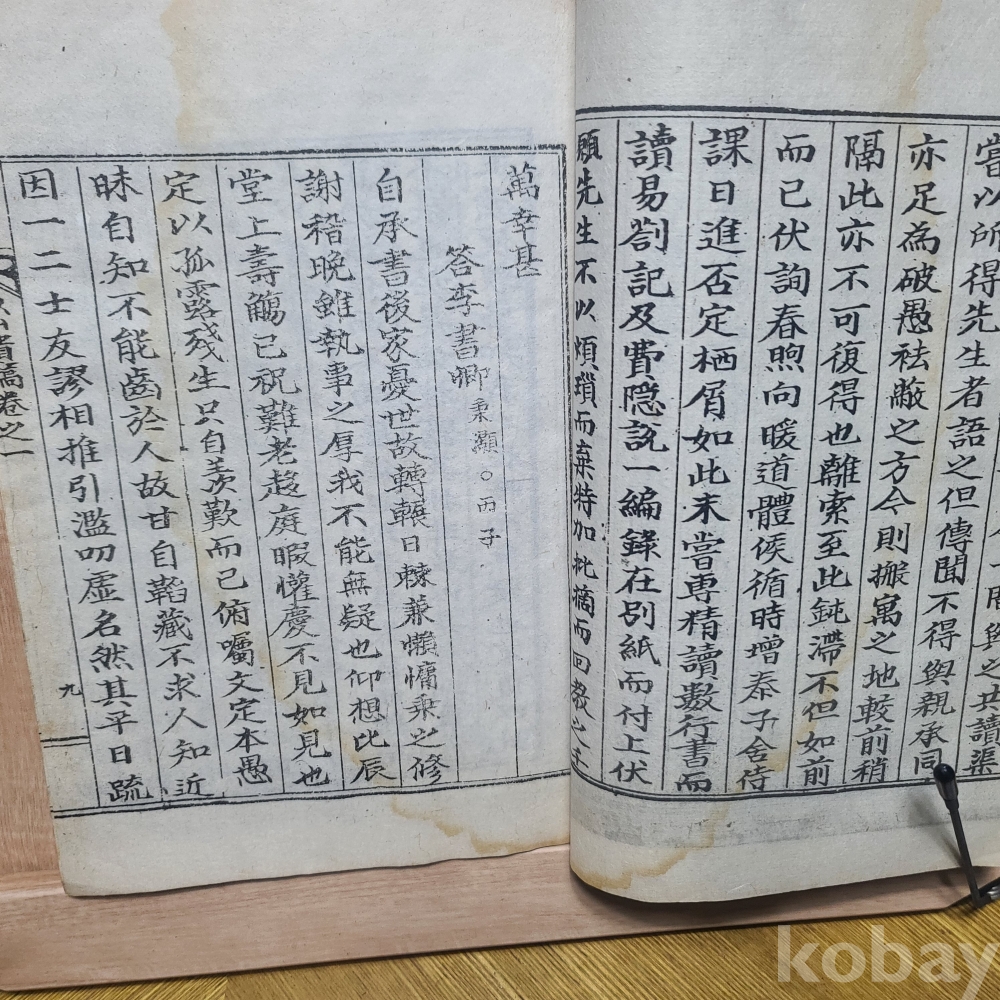 嘗以所得先生者語之但傳聞不得與親承同
亦足為破愚袪蔽之方今則搬寓之地較前稍
隔此亦不可復得也離索至此鈍滯不但如前
而已伏詢春煦向暖道體候循時增泰子舍侍
課日進否定栖屑如此未嘗専精讀數行書而
讀易劄記及費隱說一編錄在別紙而付上伏
願先生不以煩瑣而棄特加批摘而回敎之千
萬幸甚
答李書卿秉灝○丙子
自承書後家憂世故轉輾日棘兼懶慵乘之修
謝稽晩雖執事之厚我不能無疑也仰想比辰
堂上壽觴已祝難老趍庭暇懽慶不見如見也
定以孤露殘生只自羨歎而已俯囑文定本愚
昧自知不能齒於人故甘自韜藏不求人知近
因一二士友謬相推引濫叨虛名然其平日疏
稿卷之一
九
kobay